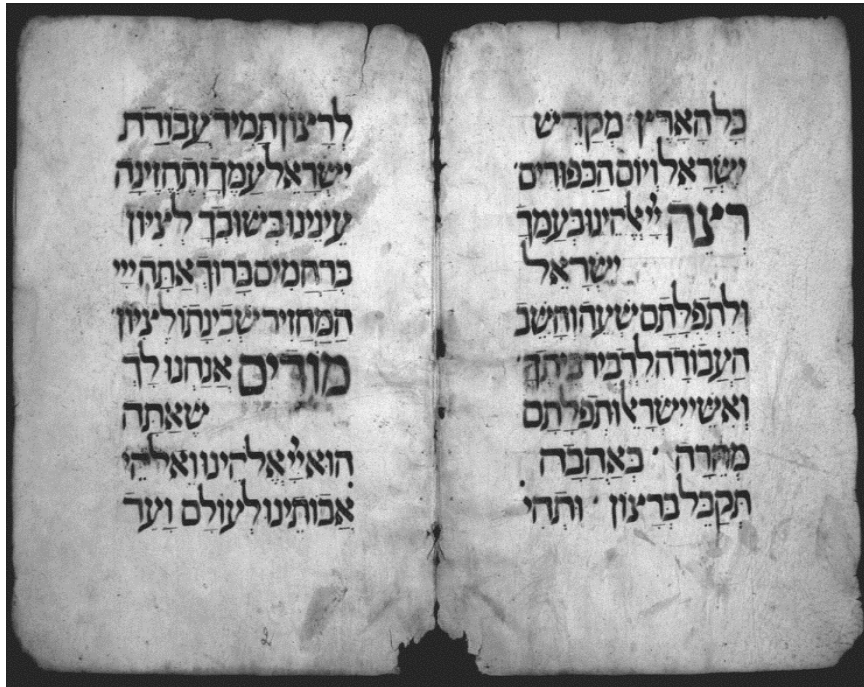 כָּל הָאָרֶץ · מְקַדֵּישׁ
יִשְׂרָאֵל וְיוֹם הַכִּפּוּרִים ·
רְצֵה יְיָ אֱלֹהֵינוּ בְּעַמְּךָ
יִשְׂרָאֵל
וְלִתְפִלָּתָם שְׁעֵה וְהָשֵׁב
הָעֲבוֹדָה לִדְבִיר בֵּיתֶךָ ·
וְאִשֵּׁי יִשְׂרָאֵ וּתְפִלָּתָם
מְהֵרָה · בְּאַהֲבָה
תְּקַבֵּל בְּרָצוֹן · וּתְהִי
לְרָצוֹן תָּמִיד עֲבוֹדַת
יִשְׂרָאֵל עַמֶּךָ וְתֶחֱזֶינָה
עֵינֵינוּ בְּשׁוּבְךָ לְצִיּוֹן
בְּרַחֲמִים בָּרוּךְ אַתָּה יְיָי
הַמַּחֲזִיר שְׁכִינָתוֹ לְצִיּוֹן ·
מוֹדִים אֲנַחְנוּ לָךְ
שֶׁאַתָּה
הוּא יְיָ אֱלֹהֵינוּ וֵאלֹהֵי
אֲבוֹתֵינוּ לְעוֹלָם וָעֵד